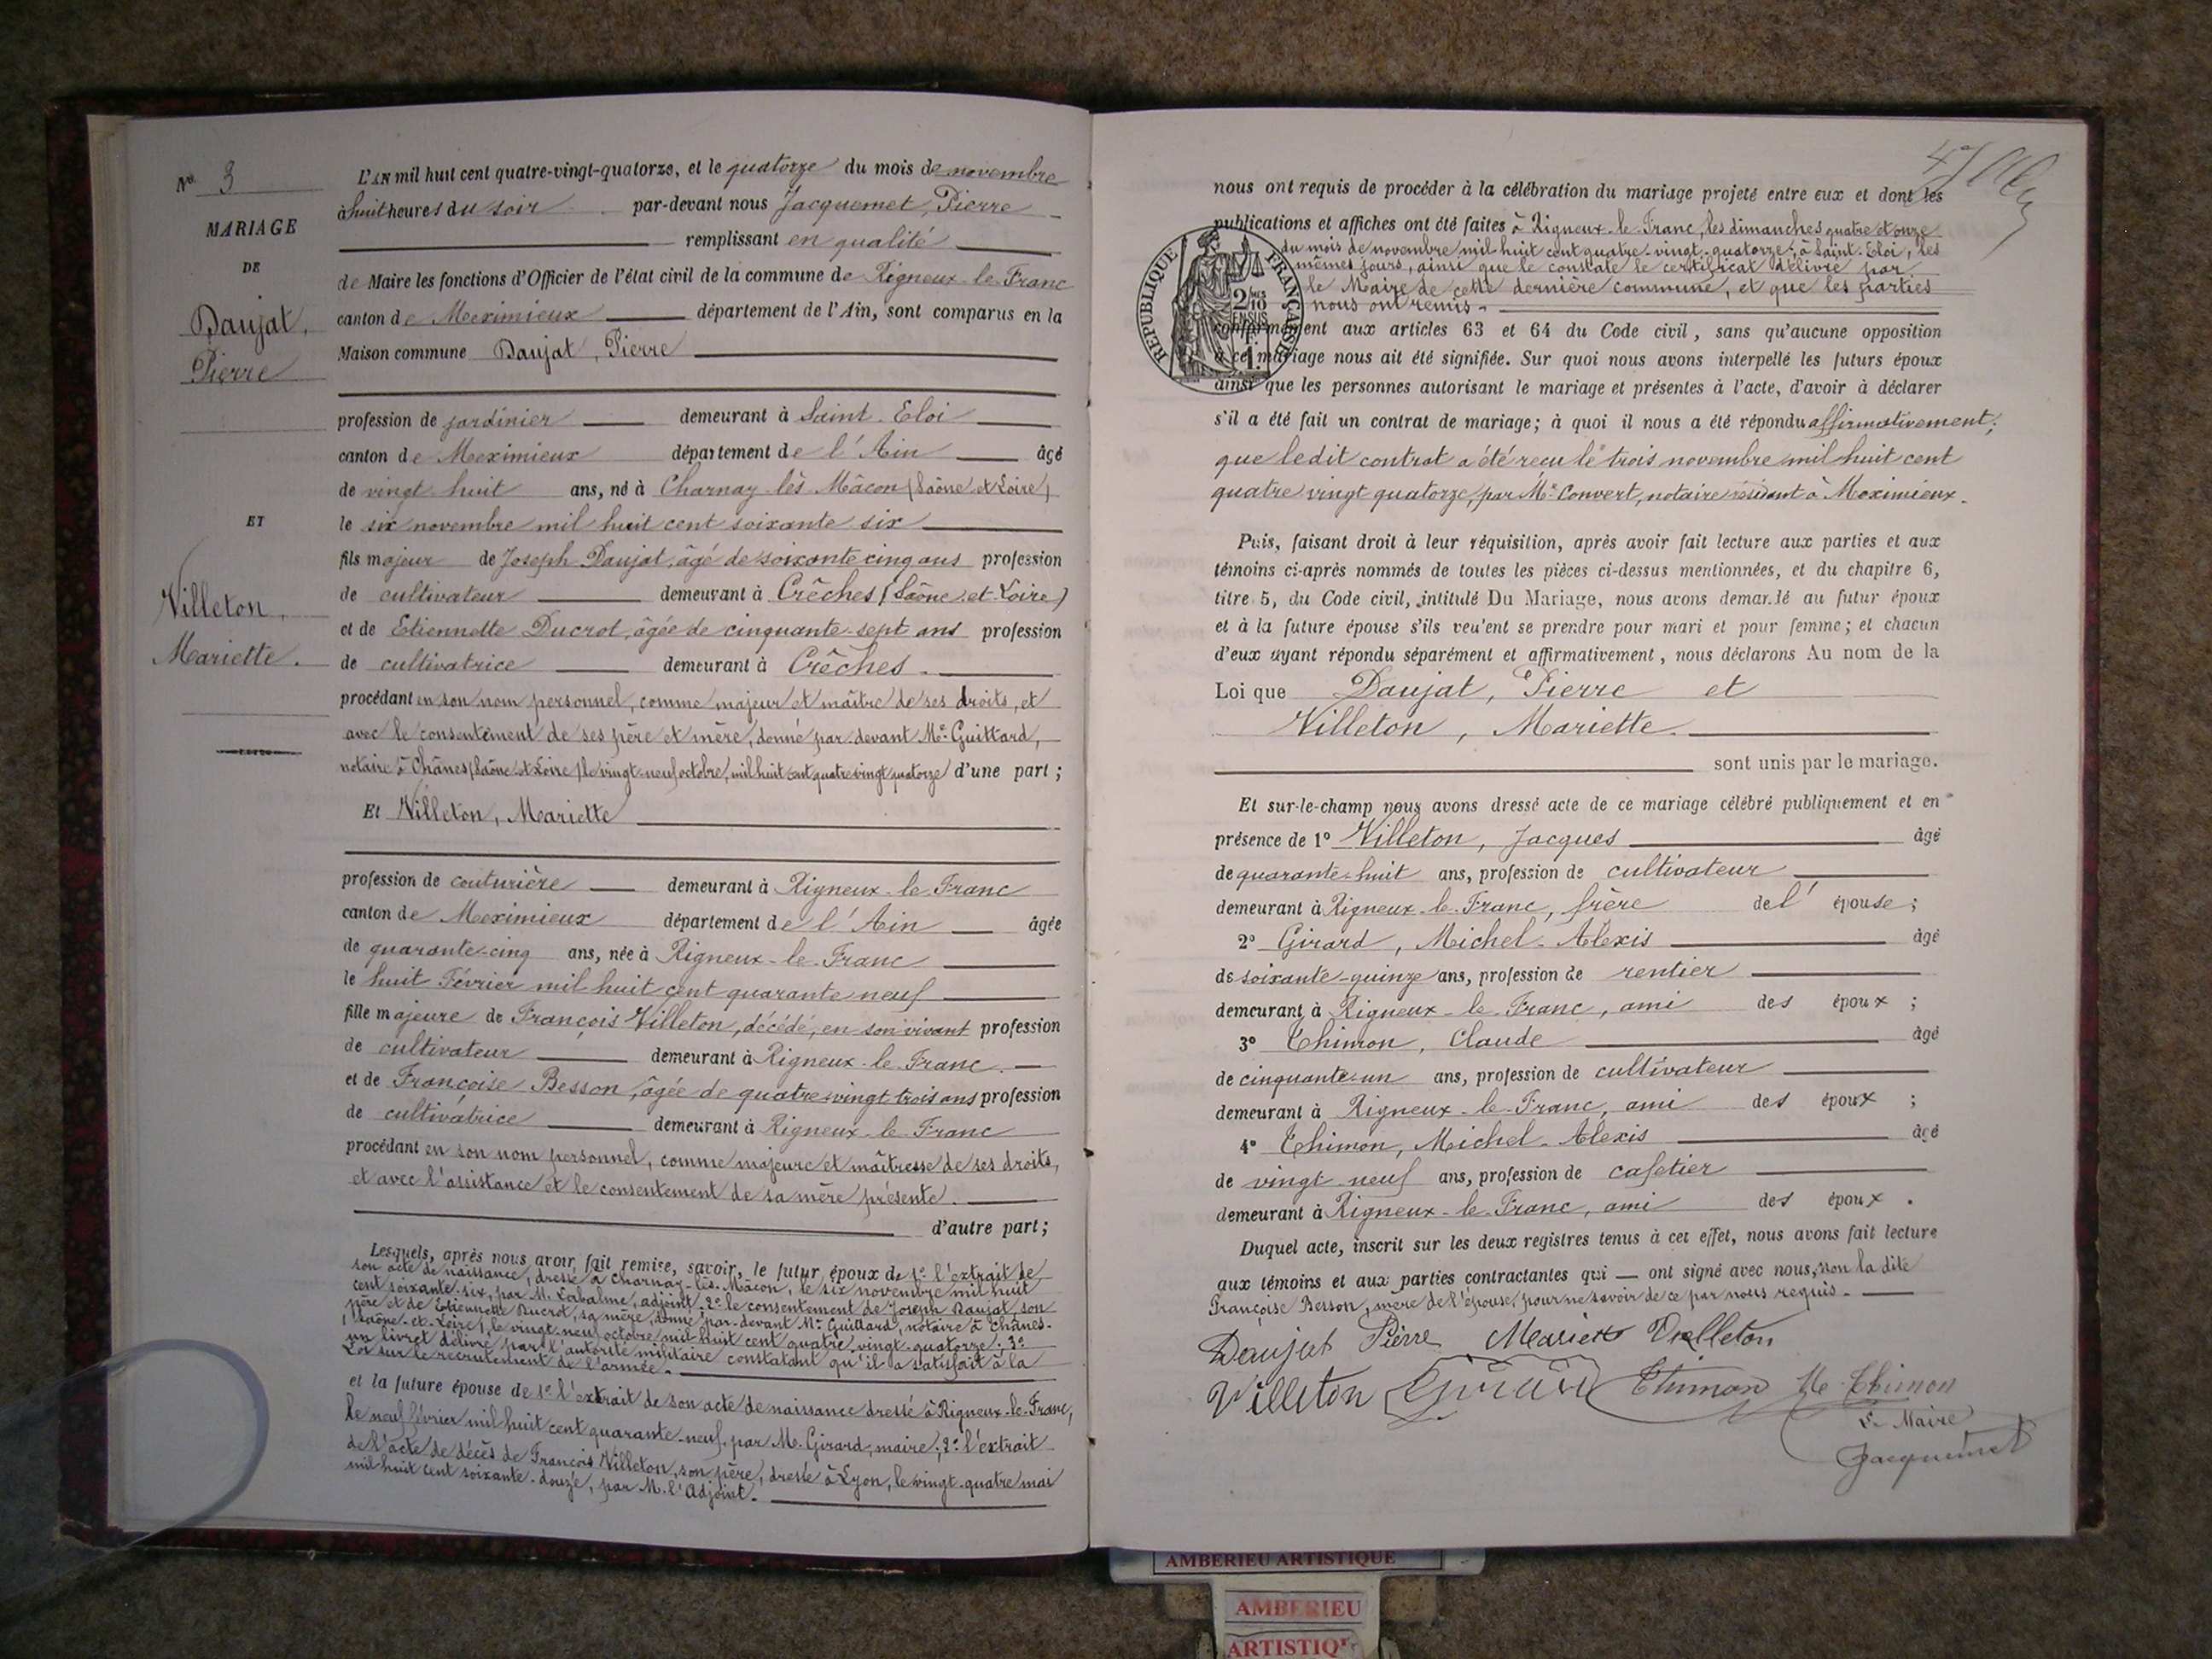 No. 3
MARIAGE
DE
Daujat,
Pierre
ET
Villeton,
Mariette.
L'AN mil huit cent quatre-vingt-quatorze, et le quatorze du mois de novembre
à huit heures du soir par-devant nous Jacquemet, Pierre
remplissant en qualité
de Maire les fonctions d'Officier de l'état civil de la commune de Rigneux-le-Franc
canton de Meximieux département de l'Ain, sont comparus en la
Maison commune Daujat, Pierre
profession de jardinier demeurant à Saint-Eloi
canton de Meximieux département de l'Ain âgé
de vingt-huit ans, né à Charnay-lès-Mâcon (Saône et Loire)
le six novembre mil huit cent soixante six
fils majeur de Joseph Daujat, âgé de soixante cinq ans profession
de cultivateur demeurant à Crêches (Saône-et-Loire)
et de Etiennette Ducrot, âgée de cinquante-sept ans profession
de cultivatrice demeurant à Crêches.
procédant en son nom personnel, comme majeur et maître de ses droits, et
avec le consentement de ses père et mère, donné par-devant Me Guittard,
notaire à Chânes (Saône et Loire) le vingt-neuf octobre, mil huit cent quatre vingt quatorze d'une part;
Et Villeton, Mariette
profession de couturière demeurant à Rigneux-le-Franc
canton de Meximieux département de l'Ain âgée
de quarante-cinq ans, née à Rigneux-le-Franc
le huit Février mil huit cent quarante neuf
fille majeure de François Villeton, décédé, en son vivant profession
de cultivateur demeurant à Rigneux-le-Franc.
et de Françoise Besson, âgée de quatre-vingt trois ans profession
de cultivatrice demeurant à Rigneux-le-Franc
procédant en son nom personnel, comme majeure et maîtresse de ses droits,
et avec l'assistance et le consentement de sa mère présente.
d'autre part;
Lesquels, après nous avoir fait remise, savoir, le futur époux de 1º l'extrait de
son acte de naissance, dressé à Charnay-lès-Mâcon, le six novembre mil huit
cent soixante-six, par M. Labalme, adjoint; 2º le consentement de Joseph Daujat, son
père et de Etiennette Ducrot, sa mère, donné par-devant Me Guittard, notaire à Chânes
(Saône-et-Loire), le vingt-neuf octobre mil huit cent quatre-vingt-quatorze; 3º
un livret délivré par l'autorité militaire constatant qu'il a satisfait à la
Loi sur le recrutement de l'armée.
et la future épouse de 1º l'extrait de son acte de naissance dressé à Rigneux-le-Franc,
le neuf février mil huit cent quarante-neuf, par M. Girard, maire; 2º l'extrait
de l'acte de décès de François Villeton, son père, dressé à Lyon, le vingt-quatre mai
mil huit cent soixante-douze, par M. l'Adjoint.
nous ont requis de procéder à la célébration du mariage projeté entre eux et dont les
publications et affiches ont été faites à Rigneux-le-Franc, les dimanches quatre et onze
du mois de novembre mil huit cent quatre-vingt-quatorze; à Saint-Eloi, les
mêmes jours, ainsi que le constate le certificat délivré par
le Maire de cette dernière commune, et que les parties
nous ont remis.
RÉPUBLIQUE FRANÇAISE
2/10 EN SUS
1 F.
conformément aux articles 63 et 64 du Code civil, sans qu'aucune opposition
à ce mariage nous ait été signifiée. Sur quoi nous avons interpellé les futurs époux
ainsi que les personnes autorisant le mariage et présentes à l'acte, d'avoir à déclarer
s'il a été fait un contrat de mariage; à quoi il nous a été répondu affirmativement;
que ledit contrat a été reçu le trois novembre mil huit cent
quatre vingt quatorze, par Me Convert, notaire résidant à Meximieux.
Puis, faisant droit à leur réquisition, après avoir fait lecture aux parties et aux
témoins ci-après nommés de toutes les pièces ci-dessus mentionnées, et du chapitre 6,
titre 5, du Code civil, intitulé Du Mariage, nous avons demandé au futur époux
et à la future épouse s'ils veulent se prendre pour mari et pour femme; et chacun
d'eux ayant répondu séparément et affirmativement, nous déclarons Au nom de la
Loi que Daujat, Pierre et
Villeton, Mariette.
sont unis par le mariage.
Et sur-le-champ nous avons dressé acte de ce mariage célébré publiquement et en
présence de 1º Villeton, Jacques âgé
de quarante-huit ans, profession de cultivateur
demeurant à Rigneux-le-Franc, frère de l'épouse;
2º Girard, Michel-Alexis âgé
de soixante-quinze ans, profession de rentier
demeurant à Rigneux-le-Franc, ami des époux;
3º Thimon, Claude âgé
de cinquante-un ans, profession de cultivateur
demeurant à Rigneux-le-Franc, ami des époux;
4º Thimon, Michel-Alexis âgé
de vingt-neuf ans, profession de cafetier
demeurant à Rigneux-le-Franc, ami des époux.
Duquel acte, inscrit sur les deux registres tenus à cet effet, nous avons fait lecture
aux témoins et aux parties contractantes qui ont signé avec nous, non la dite
Françoise Besson, mère de l'épouse, pour ne savoir de ce par nous requis.
Daujat Pierre Mariette Villeton
Villeton Girard Thimon M. Thimon
Le Maire
Jacquemet
AMBERIEU ARTISTIQUE
AMBERIEU
ARTISTIQU